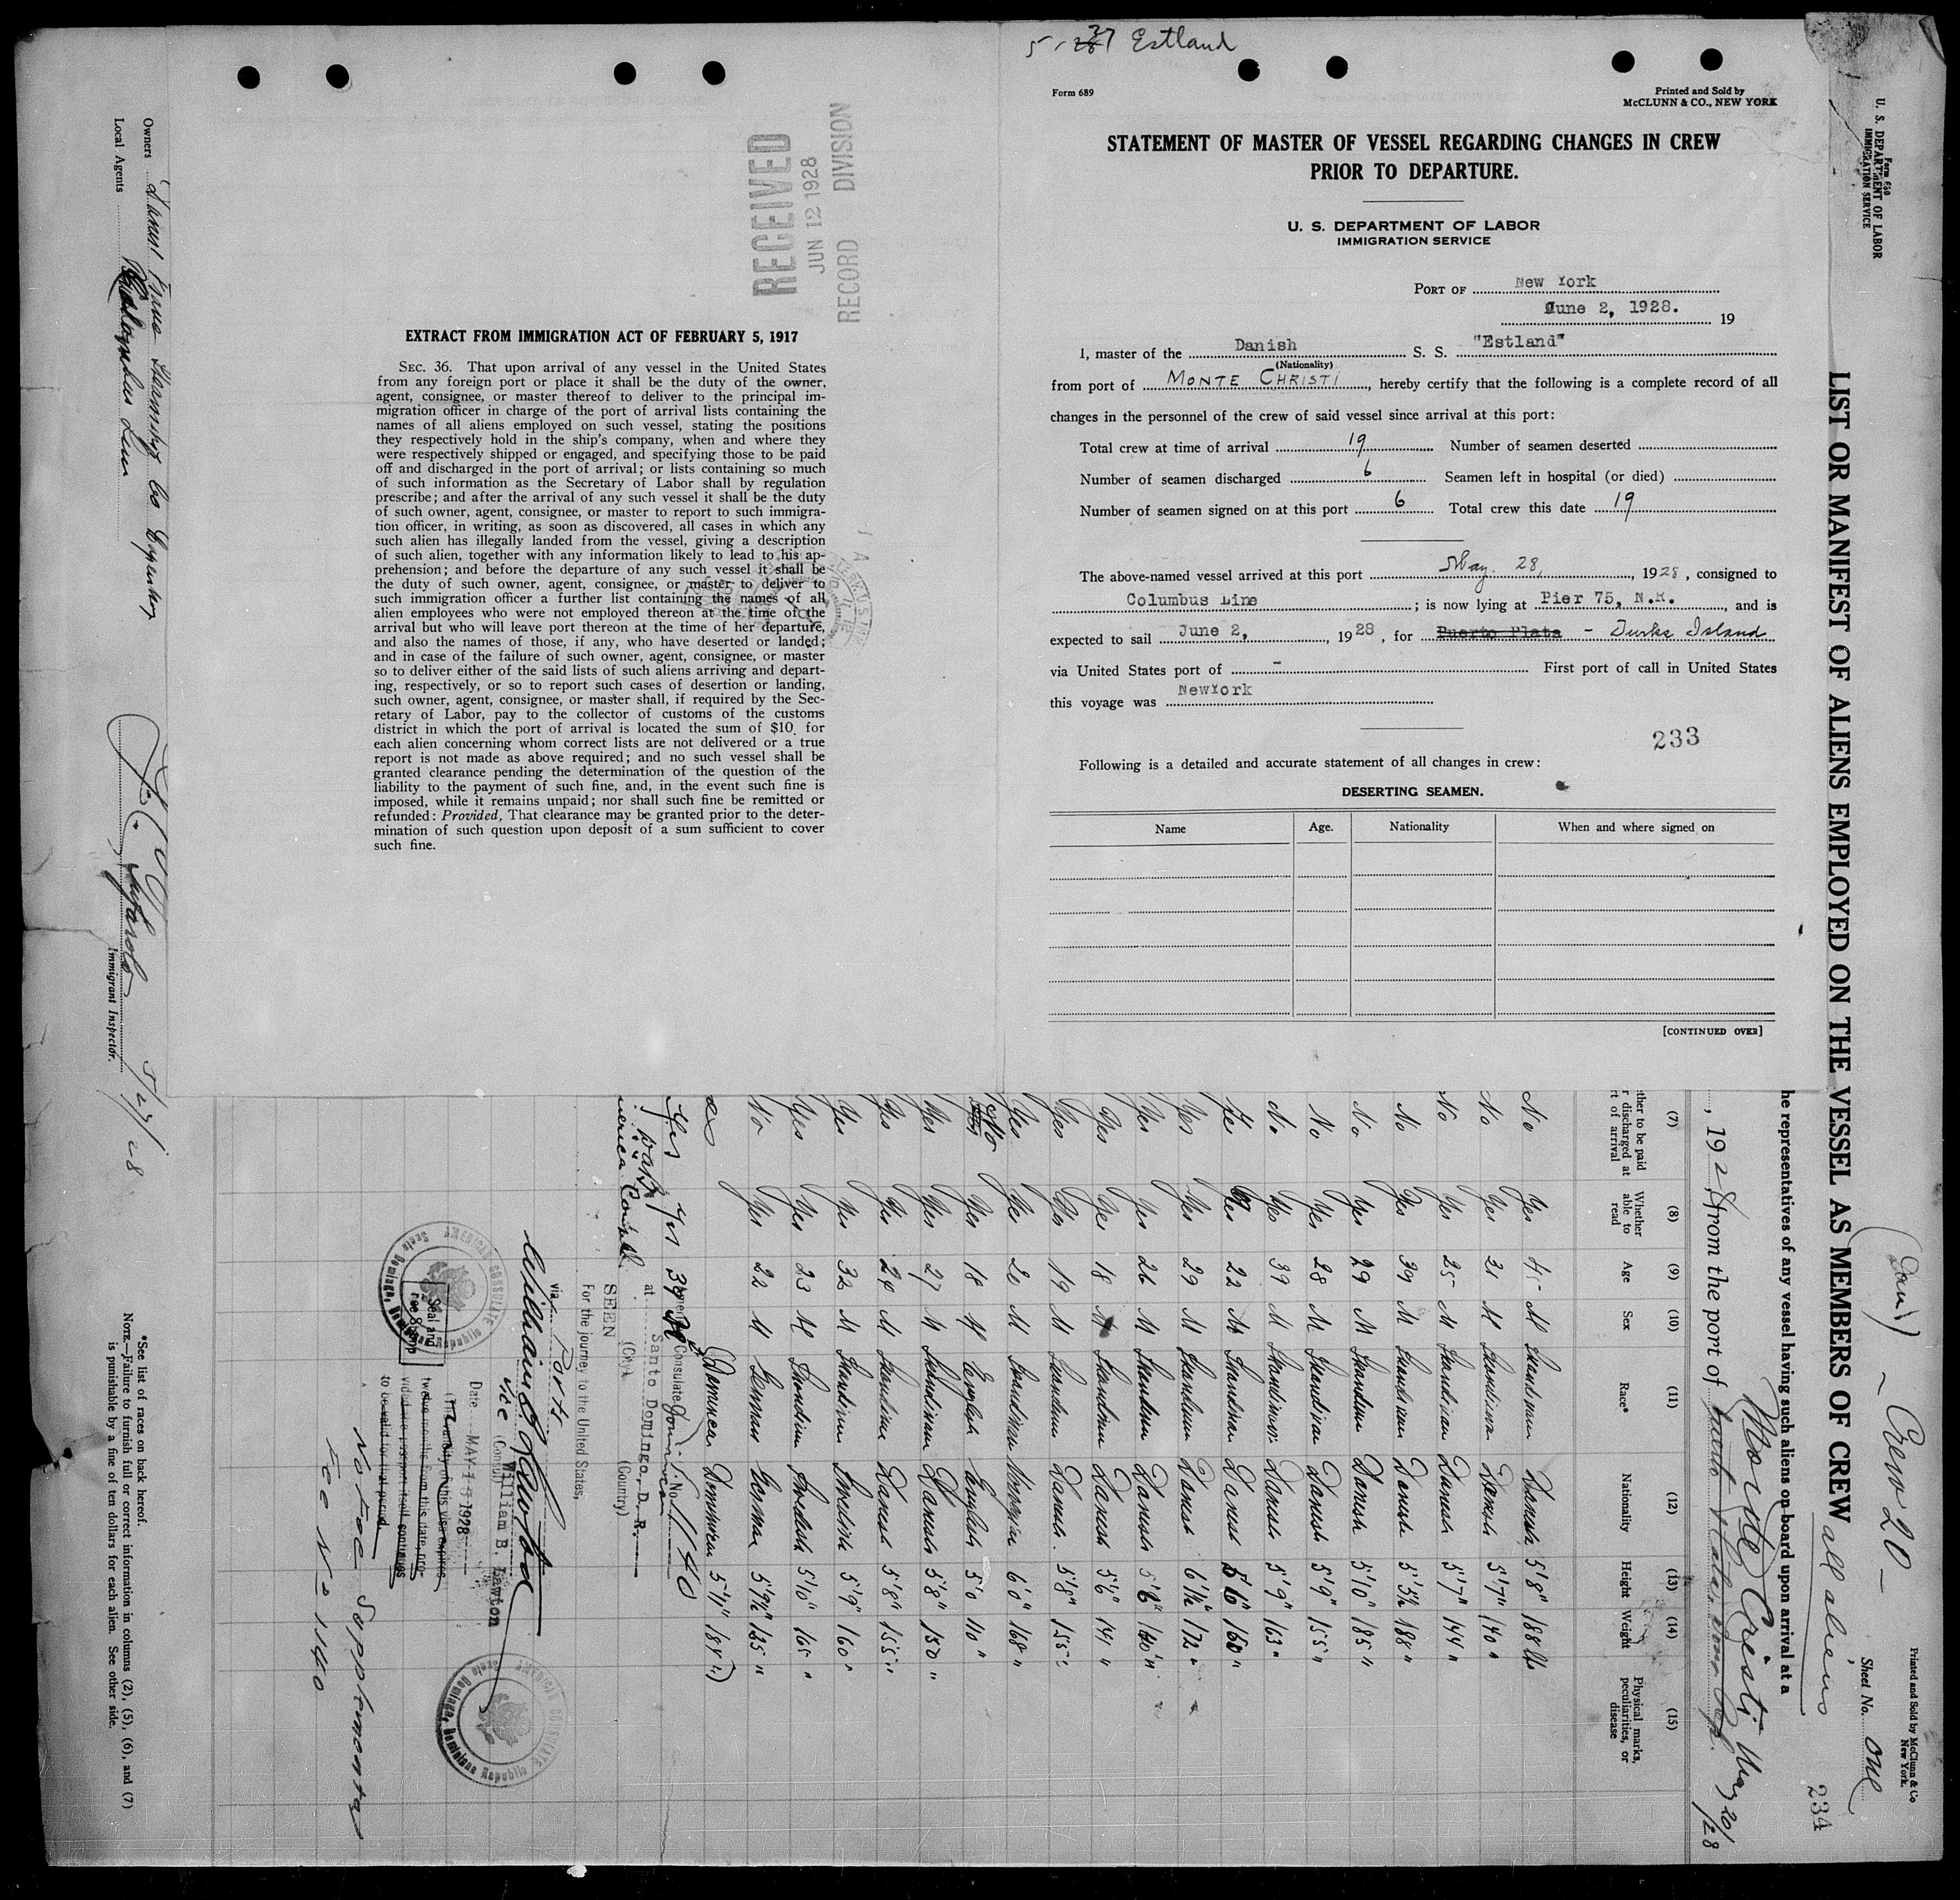 5-27 Estland
Form 689
Printed and Sold by
McCLUNN & CO., NEW YORK
STATEMENT OF MASTER OF VESSEL REGARDING CHANGES IN CREW
PRIOR TO DEPARTURE.
U. S. DEPARTMENT OF LABOR
IMMIGRATION SERVICE
PORT OF New York
June 2, 1928. 19
I, master of the Danish S. S. "Estland"
(Nationality)
from port of MONTE CHRISTI, hereby certify that the following is a complete record of all
changes in the personnel of the crew of said vessel since arrival at this port:
Total crew at time of arrival 19 Number of seamen deserted
Number of seamen discharged 6 Seamen left in hospital (or died)
Number of seamen signed on at this port 6 Total crew this date 19
The above-named vessel arrived at this port May. 28, 1928, consigned to
Columbus Line; is now lying at Pier 75, N.R., and is
expected to sail June 2, 1928, for Puerto Plata - Turks Island
via United States port of - First port of call in United States
this voyage was NewYork
233
Following is a detailed and accurate statement of all changes in crew:
DESERTING SEAMEN.
Name Age. Nationality When and where signed on
[CONTINUED OVER]
RECEIVED
JUN 12 1928
RECORD DIVISION
EXTRACT FROM IMMIGRATION ACT OF FEBRUARY 5, 1917
SEC. 36. That upon arrival of any vessel in the United States
from any foreign port or place it shall be the duty of the owner,
agent, consignee, or master thereof to deliver to the principal im-
migration officer in charge of the port of arrival lists containing the
names of all aliens employed on such vessel, stating the positions
they respectively hold in the ship's company, when and where they
were respectively shipped or engaged, and specifying those to be paid
off and discharged in the port of arrival; or lists containing so much
of such information as the Secretary of Labor shall by regulation
prescribe; and after the arrival of any such vessel it shall be the duty
of such owner, agent, consignee, or master to report to such immigra-
tion officer, in writing, as soon as discovered, all cases in which any
such alien has illegally landed from the vessel, giving a description
of such alien, together with any information likely to lead to his ap-
prehension; and before the departure of any such vessel it shall be
the duty of such owner, agent, consignee, or master to deliver to
such immigration officer a further list containing the names of all
alien employees who were not employed thereon at the time of the
arrival but who will leave port thereon at the time of her departure,
and also the names of those, if any, who have deserted or landed;
and in case of the failure of such owner, agent, consignee, or master
so to deliver either of the said lists of such aliens arriving and depart-
ing, respectively, or so to report such cases of desertion or landing,
such owner, agent, consignee, or master shall, if required by the Sec-
retary of Labor, pay to the collector of customs of the customs
district in which the port of arrival is located the sum of $10 for
each alien concerning whom correct lists are not delivered or a true
report is not made as above required; and no such vessel shall be
granted clearance pending the determination of the question of the
liability to the payment of such fine, and, in the event such fine is
imposed, while it remains unpaid; nor shall such fine be remitted or
refunded: Provided, That clearance may be granted prior to the deter-
mination of such question upon deposit of a sum sufficient to cover
such fine.
Printed and Sold by McClunn & Co
New York.
Form 680
U. S. DEPARTMENT OF LABOR
IMMIGRATION SERVICE
(Dan) - Crew 20 -
Sheet No. one
LIST OR MANIFEST OF ALIENS EMPLOYED ON THE VESSEL AS MEMBERS OF CREW all aliens
234
he representatives of any vessel having such aliens on board upon arrival at a
Monte Cristi May 20/28
, 1928, from the port of
(7) (8) (9) (10) (11) (12) (13) (14) (15)
Whether able to read Age Sex Race* Nationality Height Weight Physical marks, peculiarities, or disease
No Yes 45 M Danish 5'8" 188 lbs
No Yes 31 M Danish 5'7" 140 "
No Yes 25 M Danish 5'7" 144 "
No Yes 39 M Danish 5'3½ 188 "
No Yes 29 M Danish 5'10" 185 "
No Yes 28 M Danish 5'9" 155 "
No Yes 39 M Danish 5'9" 163 "
Yes Yes 22 M Danish 5'6" 160 "
Yes Yes 29 M Danish 6'1½ 172 "
Yes Yes 26 M Danish 140 "
Yes Yes 18 M Danish 5'6" 141 "
Yes Yes 19 M Danish 5'8" 155 "
Yes Yes 20 M 6'0" 168 "
No Yes 18 M English English 5'0 110 "
Yes Yes 27 M Danish 5'8" 150 "
Yes Yes 24 M Danish 5'8" 155 "
Yes Yes 32 M 5'9" 160 "
Yes Yes 23 M 5'10" 165 "
No Yes 22 M German German 5'9½" 135 "
Yes Yes 39 5'11" 181 "
American Consulate
at Santo Domingo, D. R.
(City) (Country)
No. 1140
SEEN
For the journey to the United States,
via Ports
William B. Lawton
Vice Consul
Date MAY 15 1928
AMERICAN CONSULATE
Santo Domingo, Dominican Republic
AMERICAN CONSULATE
Santo Domingo, Dominican Republic
No Fee Supplemental
Fee No 1140
*See list of races on back hereof.
NOTE.—Failure to furnish full or correct information in columns (2), (5), (6), and (7)
is punishable by a fine of ten dollars for each alien. See other side.
Owners
Local Agents Columbus Line
Immigrant Inspector.
5/27/28